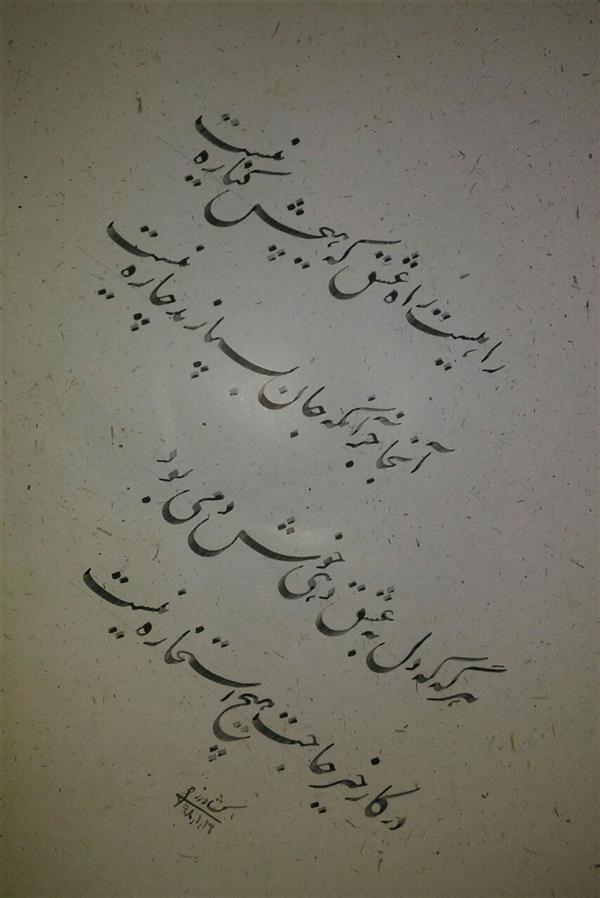 راهیست راه عشق که هیچش کناره نیست
آنجا جز آنکه جان بسپارند چاره نیست
هر گه که دل به عشق دهی خوش دمی بود
در کار خیر حاجت هیچ استخاره نیست